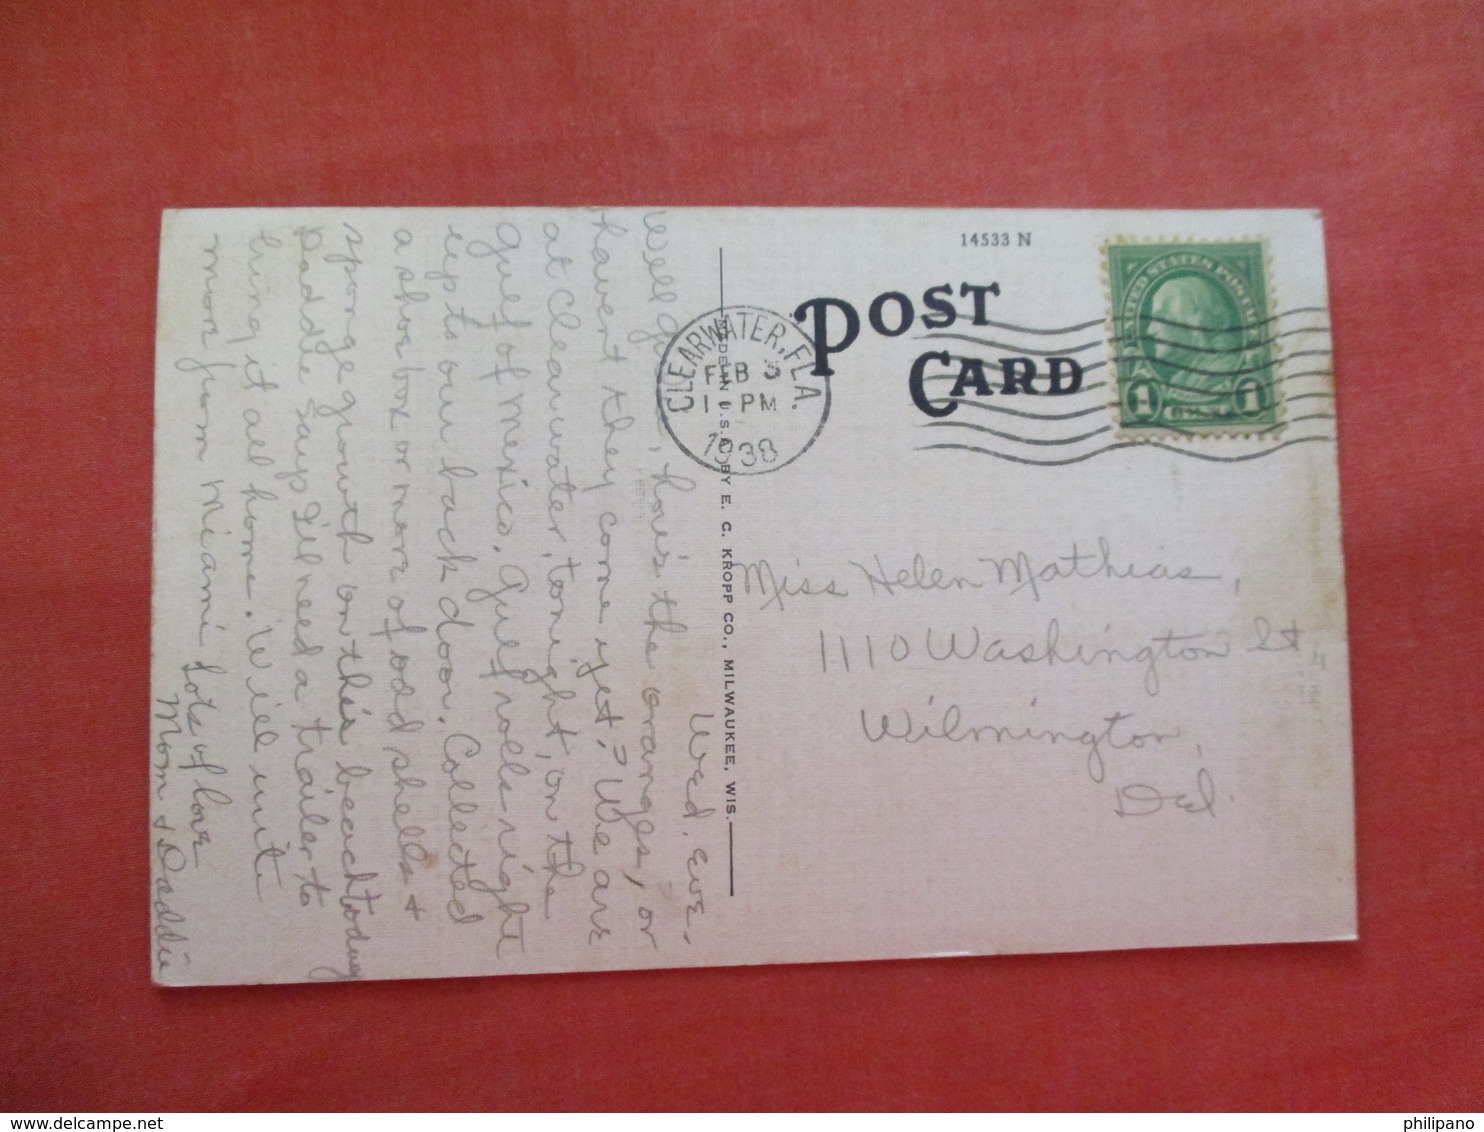 14533 N
POST
CARD
CLEARWATER, FLA.
FEB
1 PM
1938
UNITED STATES POSTAGE
1 CENT 1
MADE IN U.S.A. BY E. C. KROPP CO., MILWAUKEE, WIS.
Wed. eve.
Well girls, how's the oranges, or
havent they come yet? We are
at Clearwater, tonight, on the
gulf of Mexico. Gulf rolls right
up to our back door. Collected
a shoe box or more of odd shells +
sponge growth on this beach today
Daddie says I'll need a trailer to
bring it all home. Will write
more from Miami
Lots of love
Mom + Daddie
Miss Helen Mathias,
1110 Washington St
Wilmington,
Del.
delcampe.net
philipano